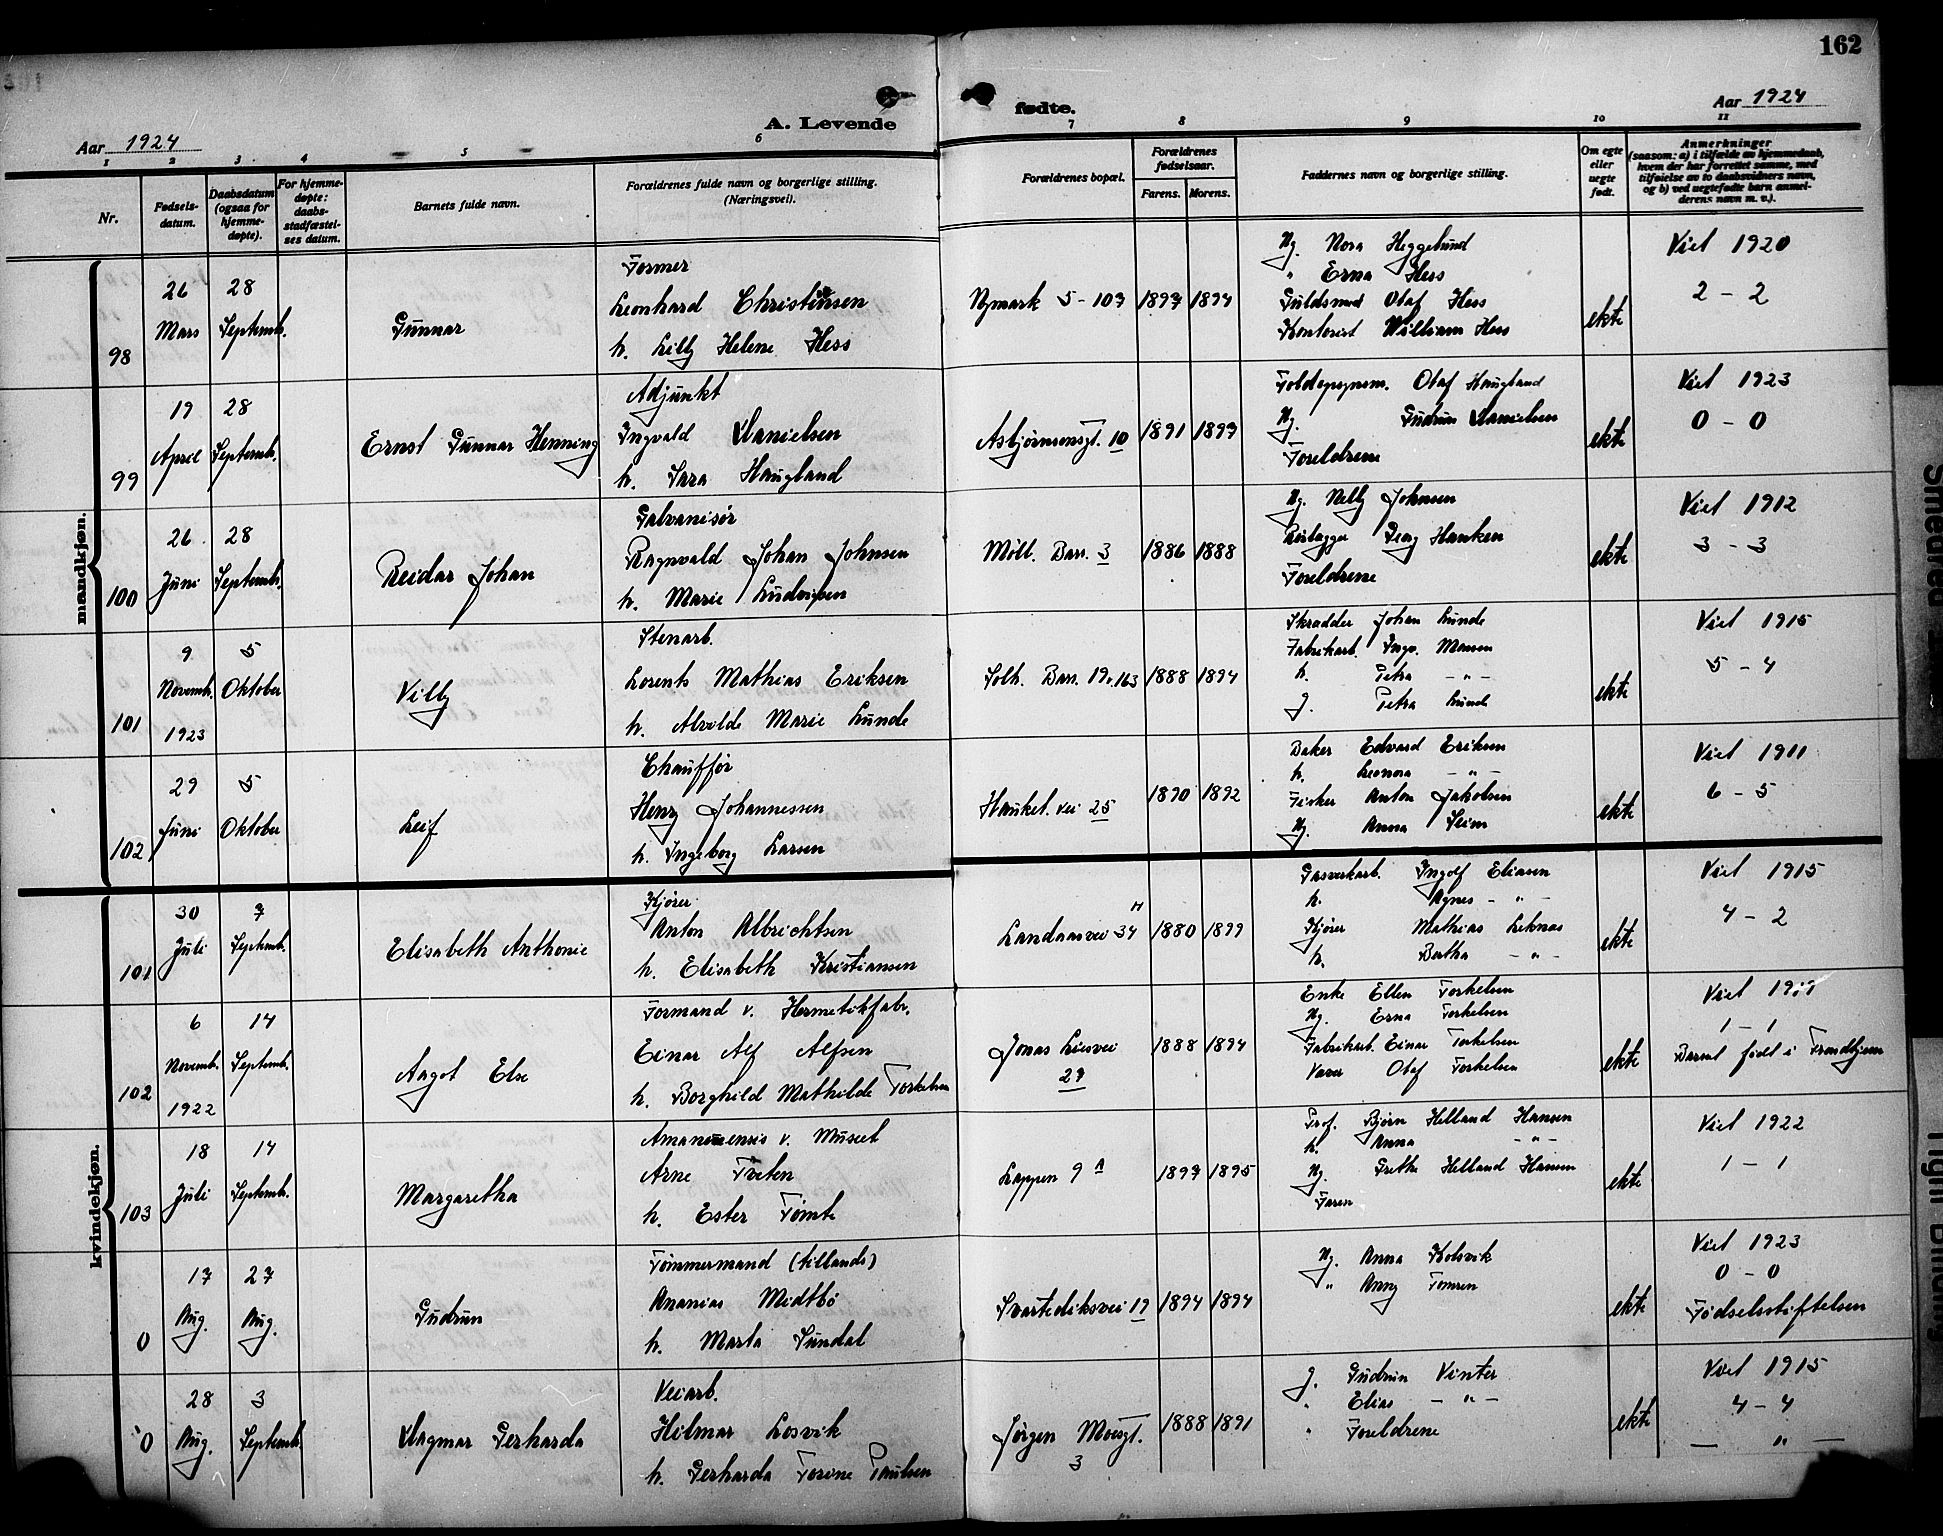 162
Aar 1924
A. Levende
fødte.
Aar 1924
1 2 3 4 5 6 7 8 9 10 11
Nr.
Fødsels-
datum.
Daabsdatum
(ogsaa for
hjemme-
døpte).
For hjemme-
døpte:
daabs-
stadfæstel-
ses datum.
Barnets fulde navn.
Forældrenes fulde navn og borgerlige stilling.
(Næringsvei).
Forældrenes bopæl.
Forældrenes
fødselsaar.
Farens. Morens.
Faddernes navn og borgerlige stilling.
Om egte
eller
uegte
født.
Anmerkninger
(saasom: a) i tilfælde av hjemmedaab,
hvem der har forrettet samme, med
tilføielse av to daabsvidners navn,
og b) ved uegtefødte barn anmel-
derens navn m. v.).
mandkjøn.
98
26
Mars
28
Septemb.
Gunnar
Former
Leonhard Christensen
h. Lilly Helene Hess
Nymark 5-103
1897 1894
Ug. Nora Heggelund
" Erna Hess
Guldsmed Olaf Hess
Kontorist William Hess
ekte
Viet 1920
2 - 2
99
19
April
28
Septemb.
Ernst Gunnar Henning
Adjunkt
Ingvald Danielsen
h. Sara Haugland
Asbjørnsensgt. 10
1891 1897
Olaf Haugland
Ug. Gudrun Danielsen
Foreldrene
ekte
Viet 1923
0 - 0
100
26
Juni
28
Septemb.
Reidar Johan
Galvanisør
Ragnvald Johan Johnsen
h. Marie Ludvigsen
Möll. Barr. 3
1886 1888
Ug. Nelly Johnsen
Georg Hanken
Foreldrene
ekte
Viet 1912
3 - 3
101
9
Novemb.
1923
5
Oktober
Villy
Stenarb.
Lorents Mathias Eriksen
h. Alvilde Marie Lunde
Solh. Barr. 19, 163
1888 1894
Skrædder Johan Lunde
Fabrikarb. Ingv. Monsen
h. Petra - " -
g. Petra Lunde
ekte
Viet 1915
5 - 4
102
29
Juni
5
Oktober
Leif
Chauffør
Henry Johannessen
h. Ingeborg Larsen
Hauket. vei 25
1890 1892
Baker Edvard Eriksen
h. Leonora - " -
Fisker Anton Jakobsen
Ug. Anna Seim
ekte
Viet 1911
6 - 5
kvindekjøn.
101
30
Juli
7
Septemb.
Elisabeth Anthonie
Kjører
Anton Albrichtsen
h. Elisabeth Kristiansen
Landaasvei 34 H
1880 1899
Gasverkarb. Ingolf Eliasen
h. Agnes - " -
Kjører Mathias Leknes
h. Bertha - " -
ekte
Viet 1915
4 - 2
102
6
Novemb.
1922
14
Septemb.
Aagot Else
Formand v. Hermetikfabr.
Einar Alf Alfsen
h. Borghild Mathilde Torkelsen
Jonas Liesvei
27
1888 1894
Enke Ellen Torkelsen
Ug. Erna Torkelsen
Fabrikarb. Einar Torkelsen
Olaf Torkelsen
ekte
Viet 1919
1 - 1
Barnet født i Trondhjem
103
18
Juli
14
Septemb.
Margaretha
Amanuensis v. Museet
Arne Tveten
h. Ester Tømte
Lappen 9 A
1897 1895
Prof. Bjørn Helland Hansen
h. Anna - " -
Ug. Grethe Helland Hansen
Faren
ekte
Viet 1922
1 - 1
0
17
Aug.
27
Aug.
Gudrun
Tømmermand (tillands)
Ananias Midtbø
h. Marta Sundal
Svartediksvei 19
1894 1894
Ug. Anna Kolsvik
" Anny Tomren
ekte
Viet 1923
0 - 0
Fødselsstiftelsen
0
28
Aug.
3
Septemb.
Dagmar Gerharda
Veiarb.
Hilmar Losvik
h. Gerharda Torine Paulsen
Jørgen Moesgt.
3
1888 1891
g. Gudrun Vinter
" Elias - " -
" Foreldrene
ekte
Viet 1915
4 - 4
— " —